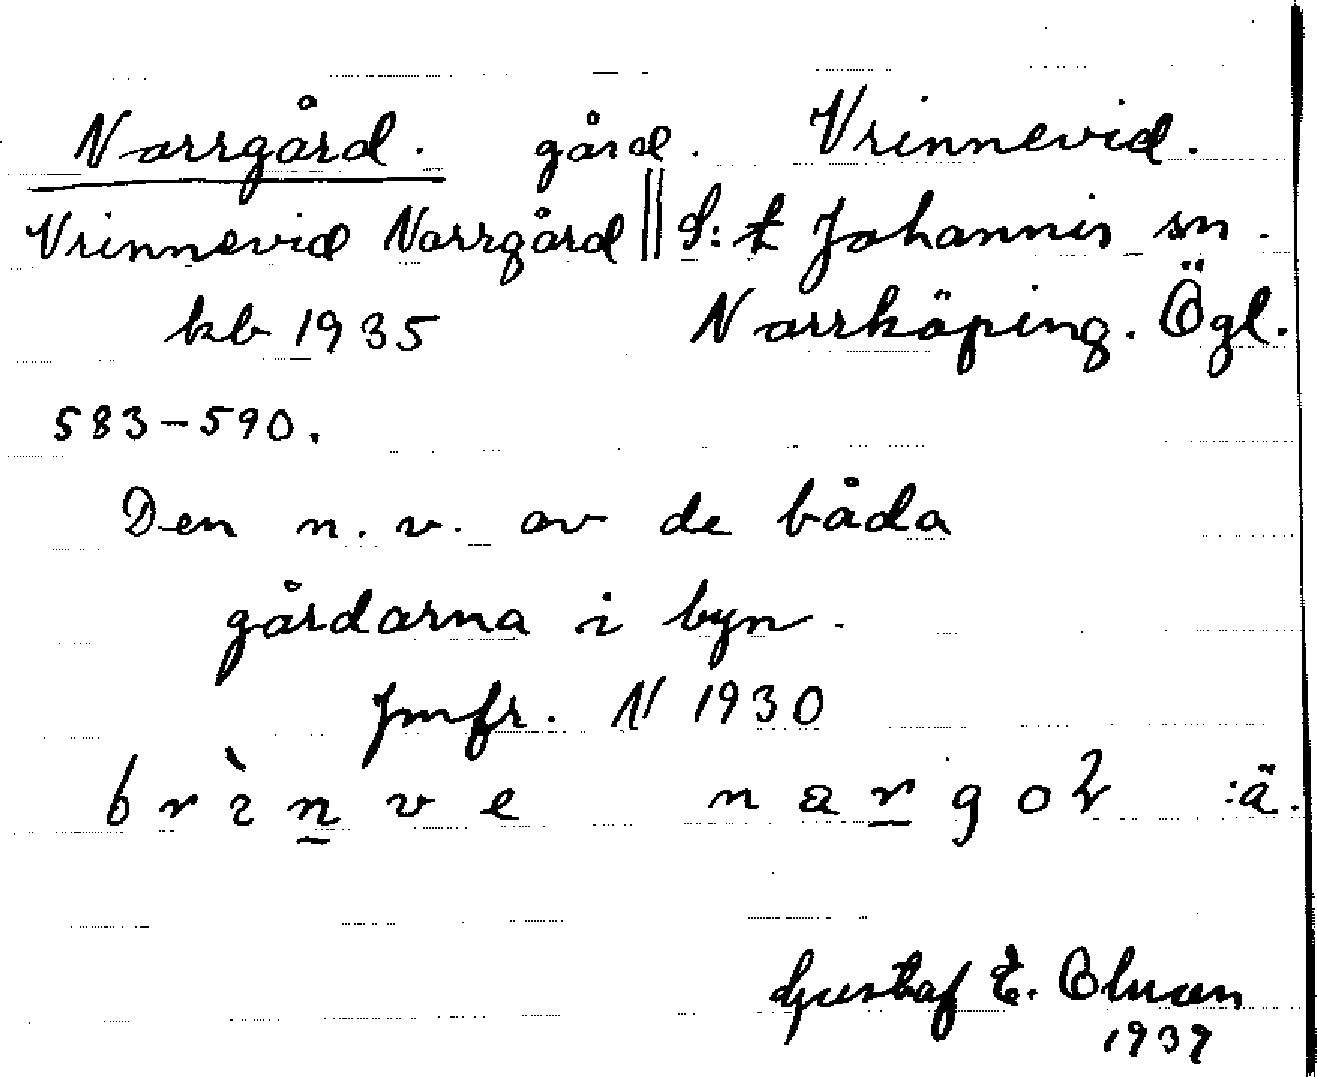 Norrgård. gård. Vrinnevid.
Vrinnevid Norrgård || S:t Johannis sn.
kb 1935 Norrköping. Ögl.
583-590.
Den n. v. av de båda
gårdarna i byn.
Jmfr. N 1930
:ä.
Gustaf E. Olson
1939